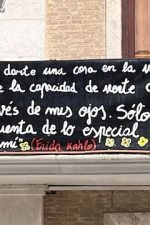 darte una cosa en la v
la capacidad de verte a
vés de mis ojos. Sólo
uenta de lo especial
mí" (Frida Kahlo)